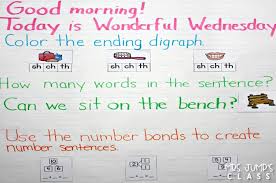 Good morning!
Today is Wonderful Wednesday
Color the ending digraph.
sh ch th sh ch th sh ch th
How many words in the sentence?
Can we sit on the bench?
Use the number bonds to create
number sentences.
MRS. JUMP'S
CLASS